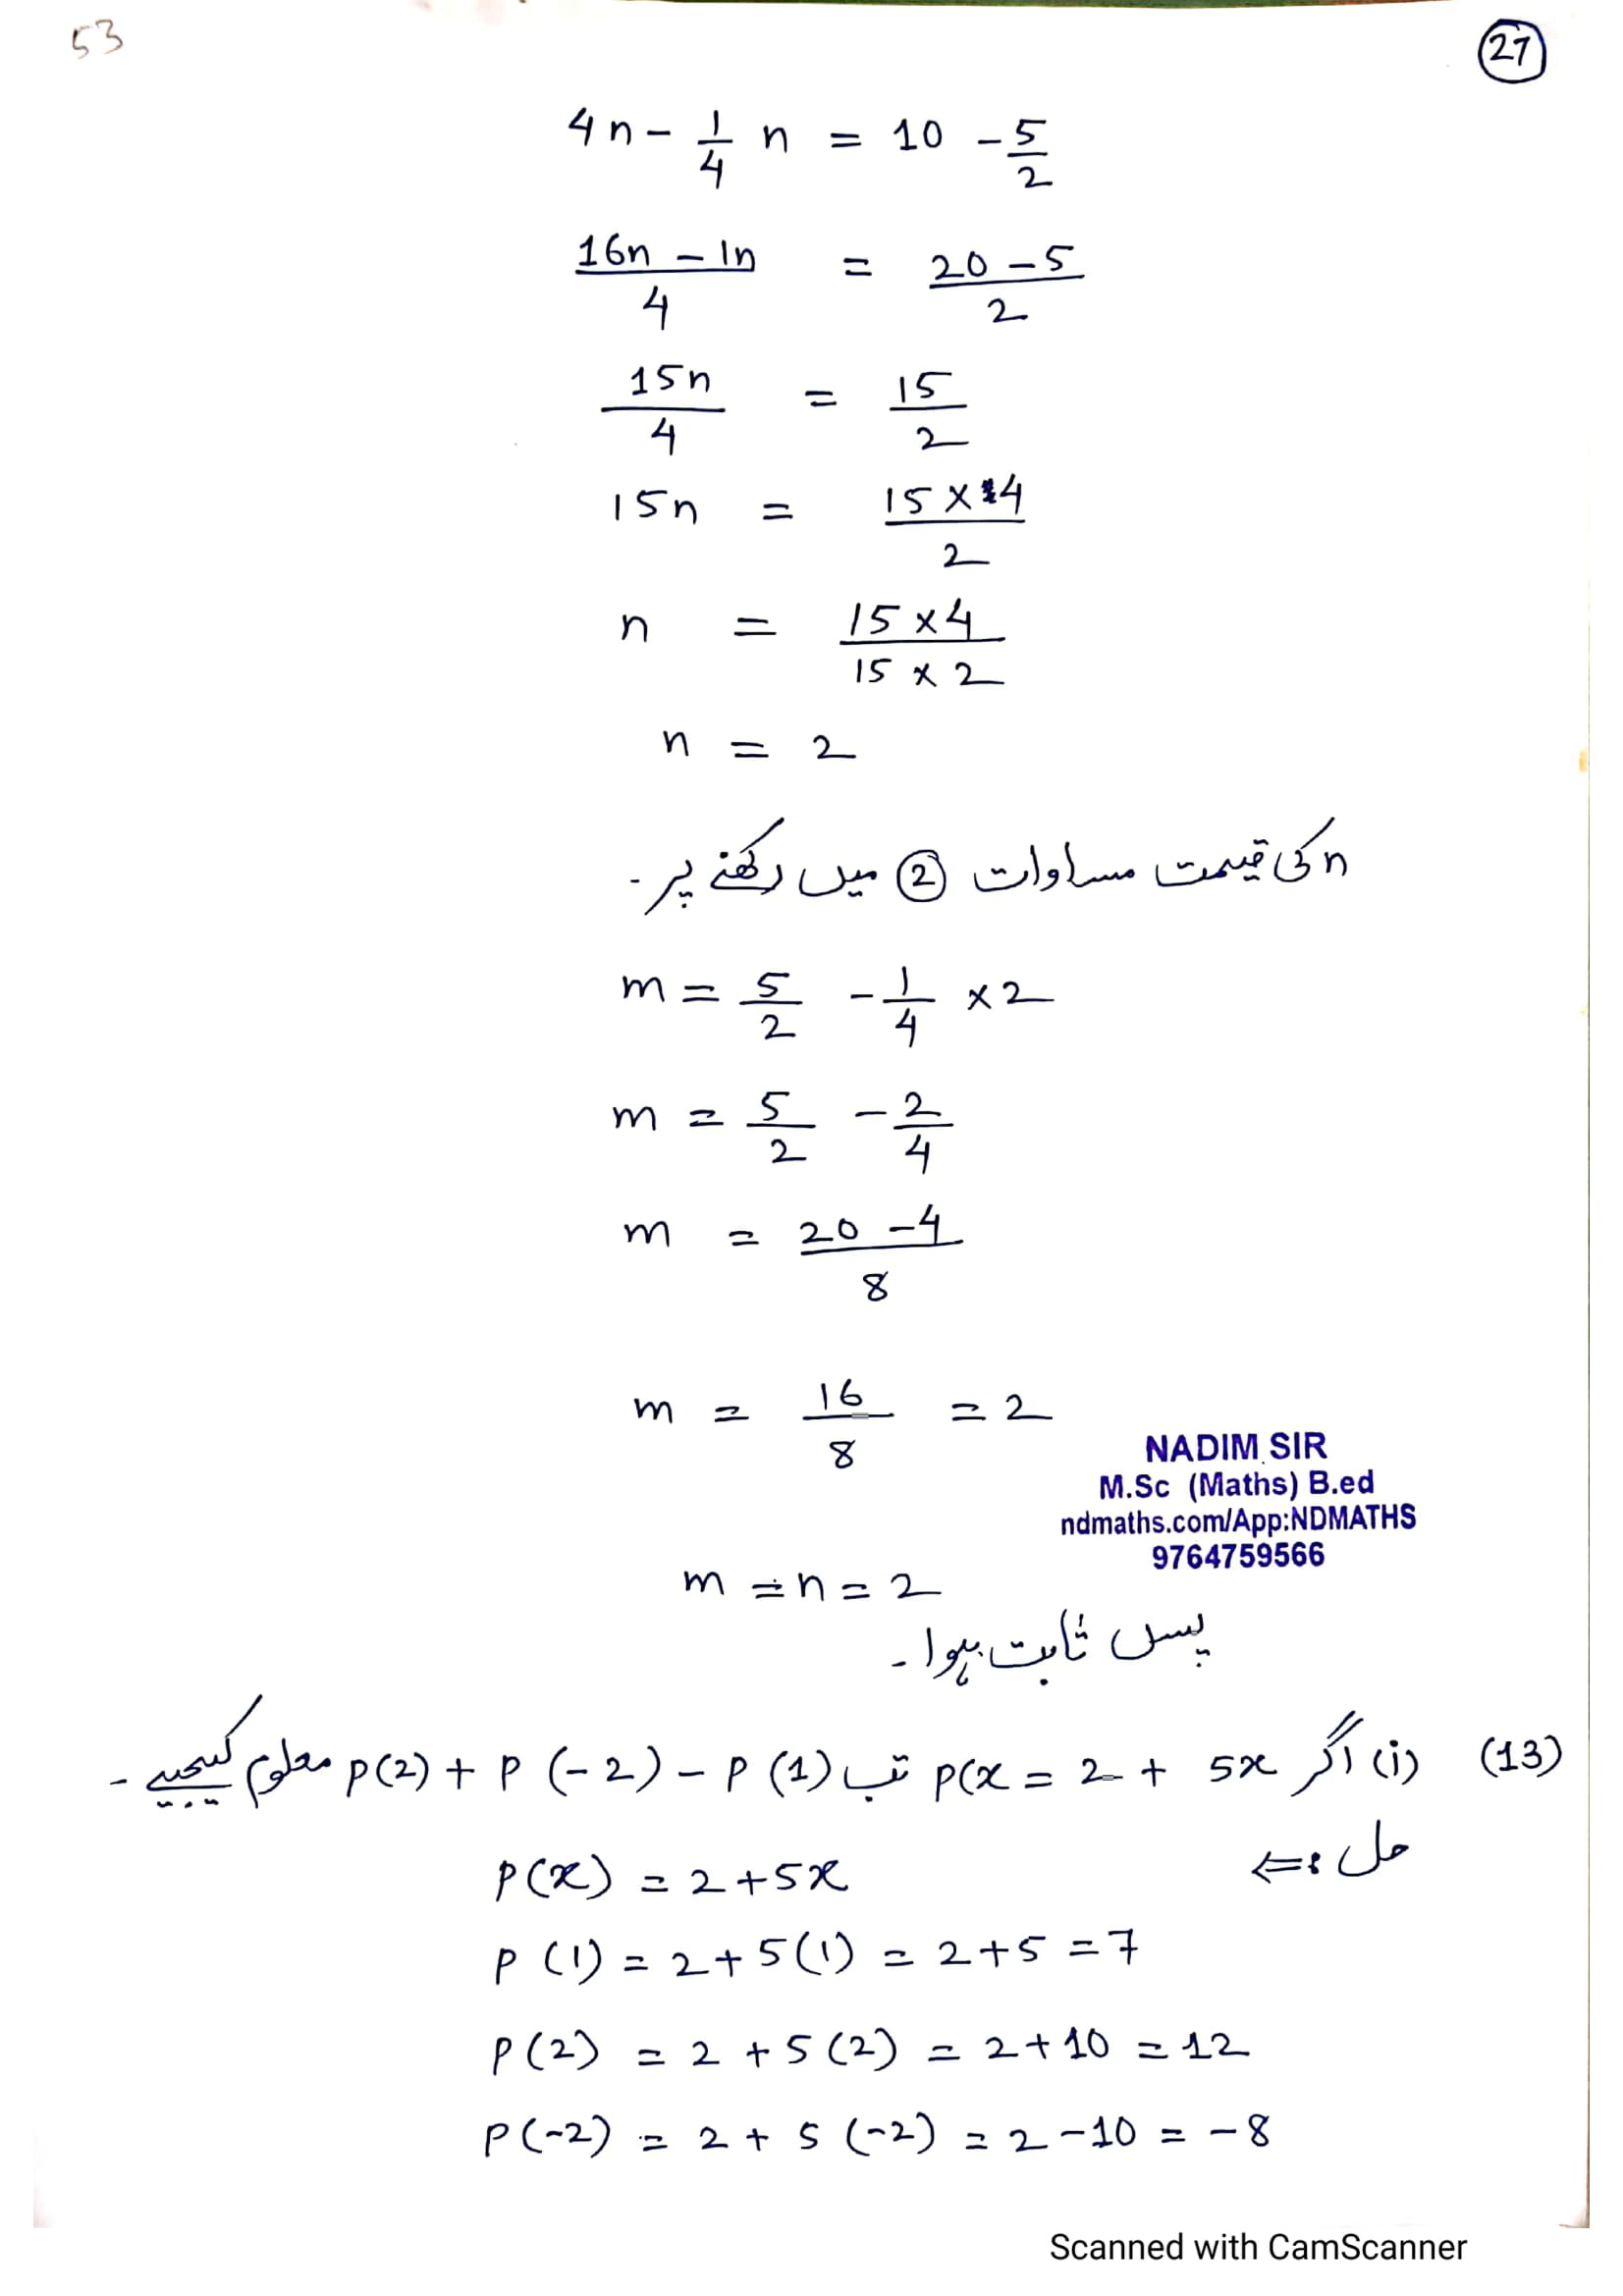 53
27
4n - 1/4 n = 10 - 5/2
16n - 1n / 4 = 20 - 5 / 2
15n / 4 = 15 / 2
15n = 15 × 4 / 2
n = 15 × 4 / 15 × 2
n = 2
n کی قیمت مساوات ② میں رکھنے پر۔
m = 5/2 - 1/4 × 2
m = 5/2 - 2/4
m = 20 - 4 / 8
m = 16/8 = 2
NADIM SIR
M.Sc (Maths) B.ed
ndmaths.com/App:NDMATHS
9764759566
m = n = 2
پس ثابت ہوا۔
(13) (i) اگر p(x = 2 + 5x تب p(2) + p (-2) - p (1) معلوم کیجیے۔
حل :⇐
p(x) = 2 + 5x
p (1) = 2 + 5(1) = 2 + 5 = 7
p(2) = 2 + 5(2) = 2 + 10 = 12
p(-2) = 2 + 5 (-2) = 2 - 10 = -8
Scanned with CamScanner